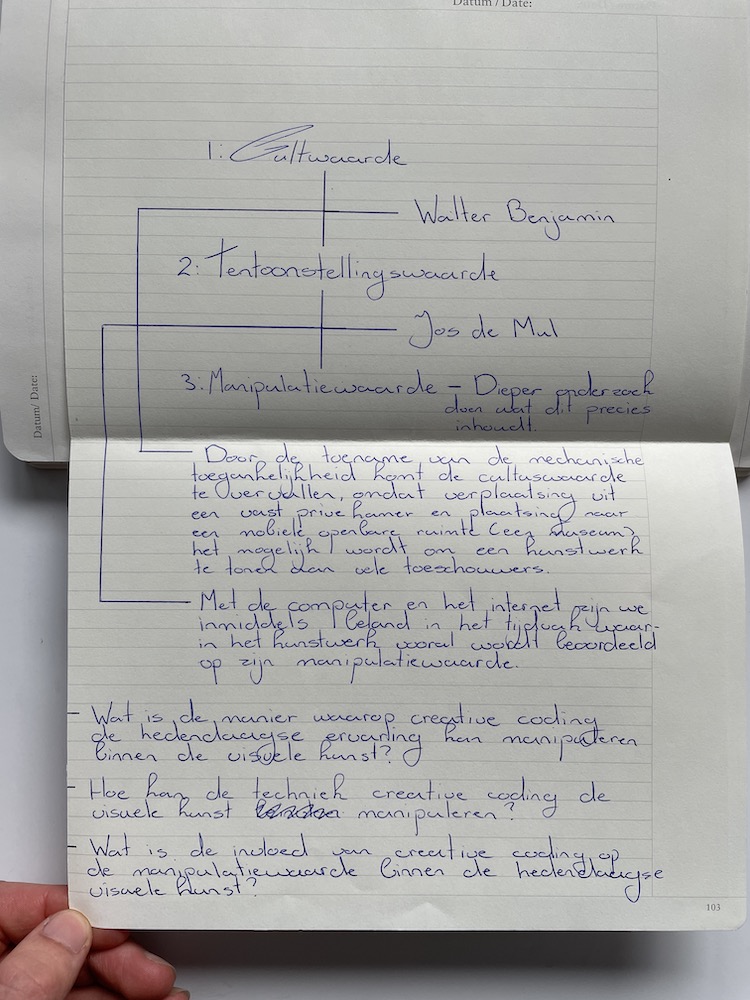 Datum / Date:
1: Cultwaarde
Walter Benjamin
2: Tentoonstellingswaarde
Jos de Mul
3: Manipulatiewaarde – Dieper onderzoek
doen wat dit precies
inhoudt.
Datum/ Date:
Door de toename van de mechanische
toegankelijkheid komt de cultuswaarde
te vervallen, omdat verplaatsing uit
een vast prive kamer en plaatsing naar
een mobiele openbare ruimte (een museum)
het mogelijk wordt om een kunstwerk
te tonen aan vele toeschouwers.
Met de computer en het internet zijn we
inmiddels beland in het tijdvak waar-
in het kunstwerk vooral wordt beoordeeld
op zijn manipulatiewaarde.
– Wat is de manier waarop creative coding
de hedendaagse ervaring kan manipuleren
binnen de visuele kunst?
– Hoe kan de techniek creative coding de
visuele kunst manipuleren?
– Wat is de invloed van creative coding op
de manipulatiewaarde binnen de hedendaagse
visuele kunst?
103